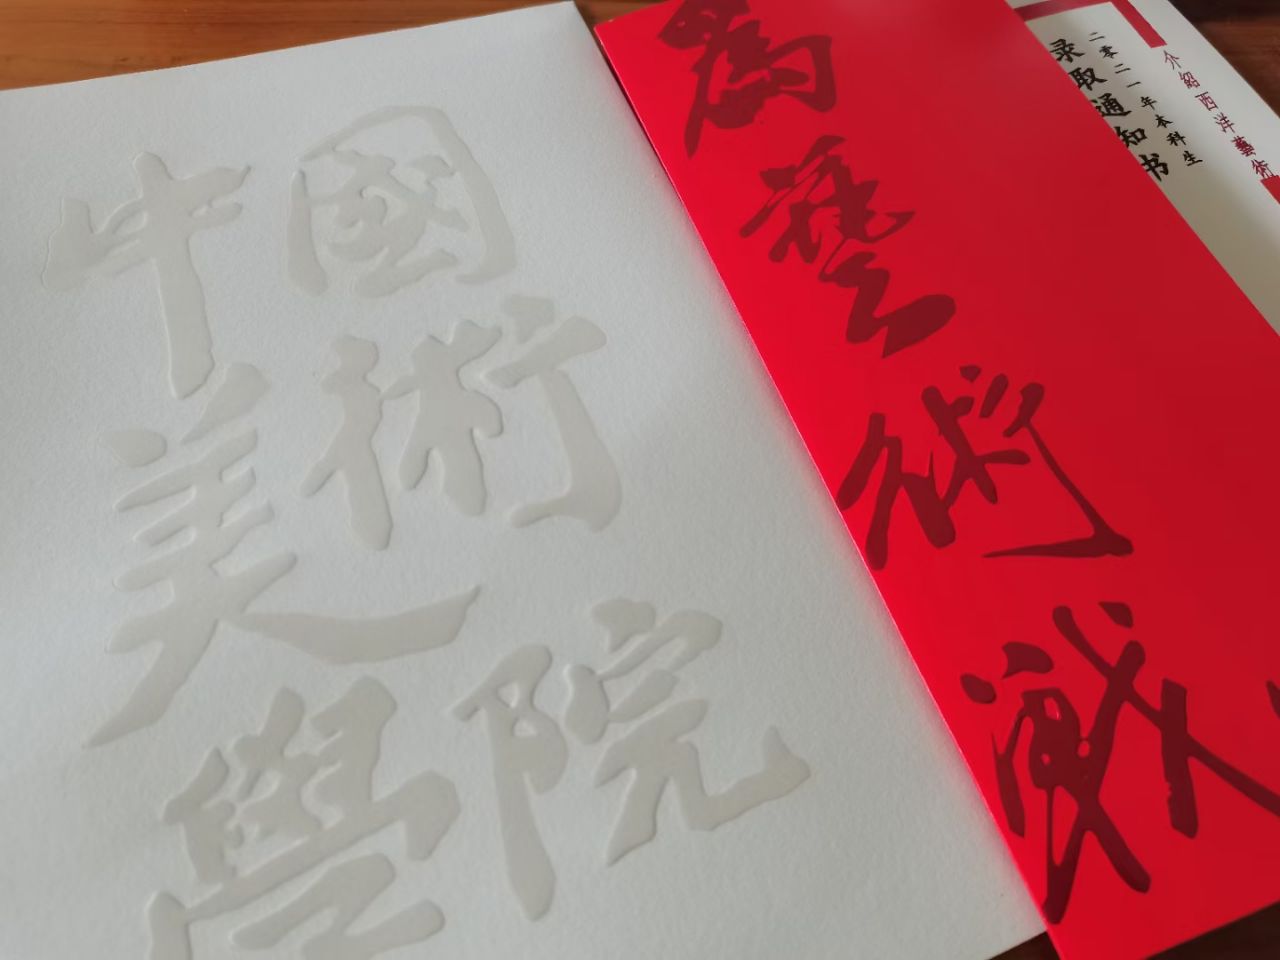 中國
美術
學院
為藝術戰
介紹西洋藝術
二零二一年本科生
录取通知书